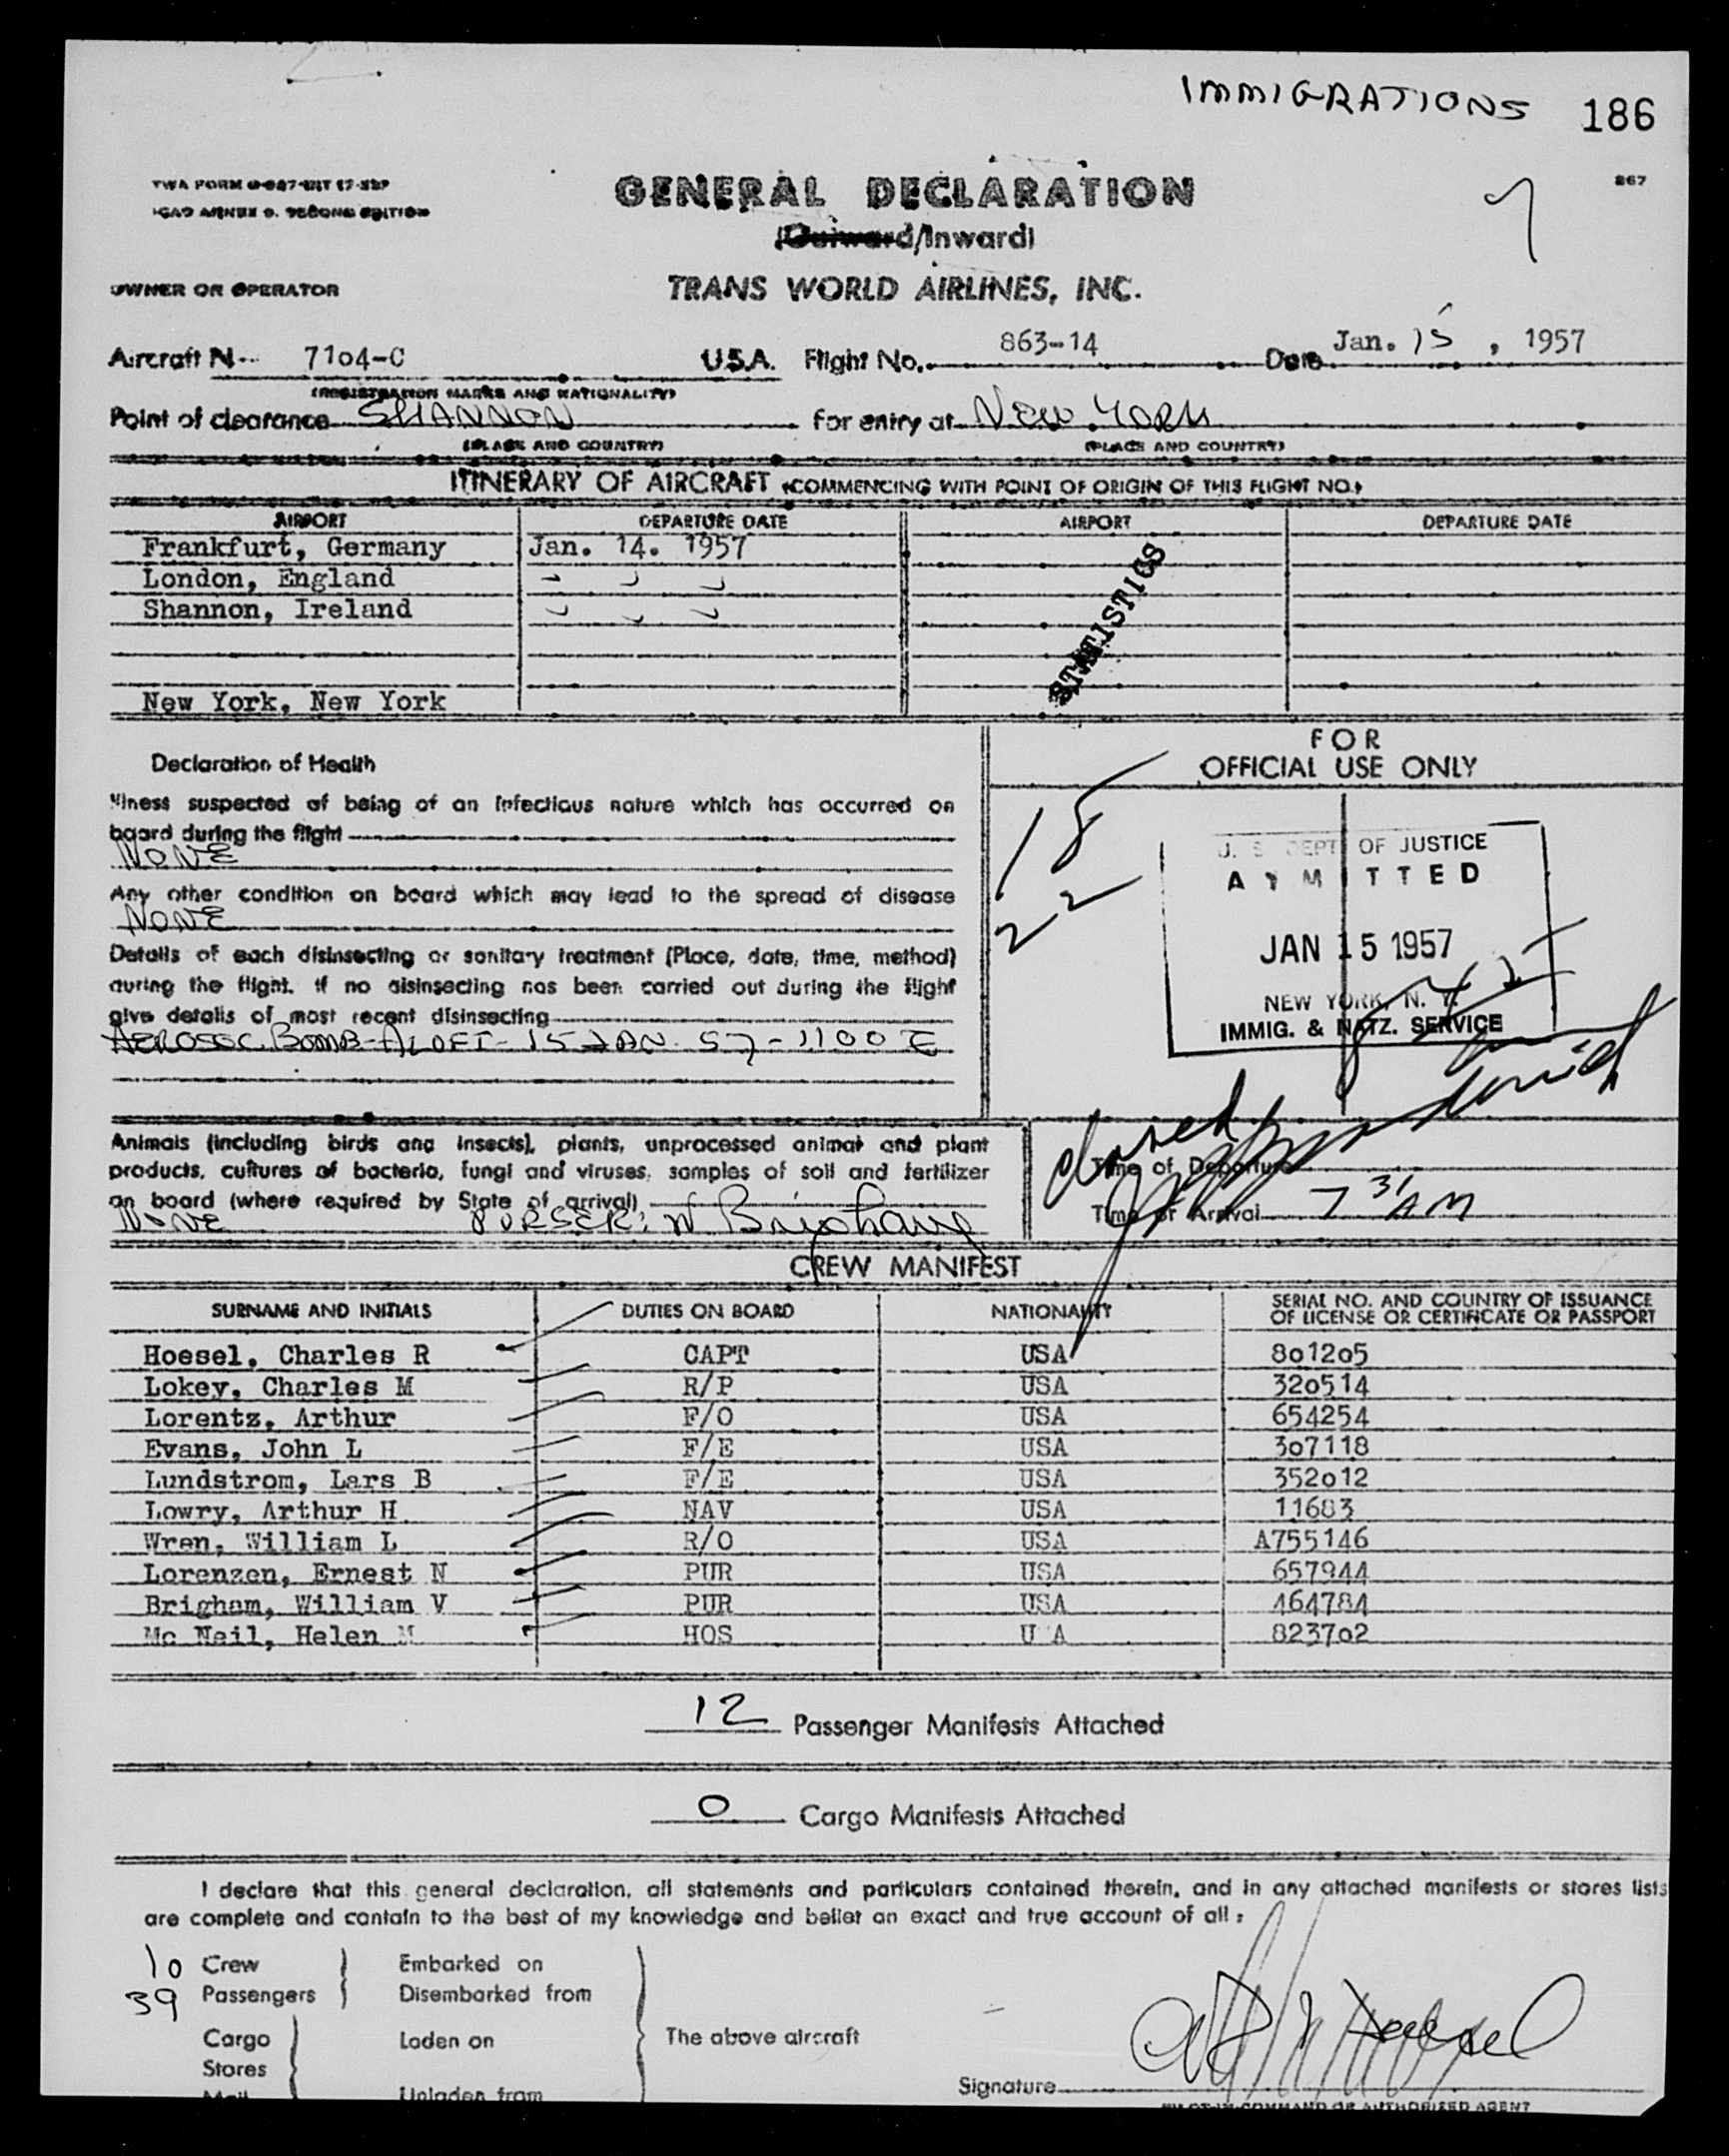 IMMIGRATIONS 186
867
GENERAL DECLARATION
(Outward/Inward)
OWNER OR OPERATOR TRANS WORLD AIRLINES, INC.
Aircraft N 7104-C U.S.A. Flight No. 863-14 Date Jan. 15, 1957
(REGISTRATION MARKS AND NATIONALITY)
Point of clearance SHANNON For entry at NEW YORK
(PLACE AND COUNTRY) (PLACE AND COUNTRY)
ITINERARY OF AIRCRAFT (COMMENCING WITH POINT OF ORIGIN OF THIS FLIGHT NO.)
AIRPORT DEPARTURE DATE AIRPORT DEPARTURE DATE
Frankfurt, Germany Jan. 14. 1957
London, England
Shannon, Ireland
New York, New York
STATISTICS
Declaration of Health
Illness suspected of being of an infectious nature which has occurred on
board during the flight
NONE
Any other condition on board which may lead to the spread of disease
NONE
Details of each disinsecting or sanitary treatment (Place, date, time, method)
during the flight. If no disinsecting has been carried out during the flight
give details of most recent disinsecting
AEROSOL BOMB-ALOFT-15 JAN 57-1100 Z
FOR
OFFICIAL USE ONLY
18
22
U. S. DEPT OF JUSTICE
ADMITTED
JAN 15 1957
NEW YORK, N. Y.
IMMIG. & NATZ. SERVICE
Animals (including birds and insects), plants, unprocessed animal and plant
products, cultures of bacteria, fungi and viruses, samples of soil and fertilizer
on board (where required by State of arrival)
NONE PURSER: W Brigham
Time of Departure
Time of Arrival 7 31 AM
CREW MANIFEST
SURNAME AND INITIALS DUTIES ON BOARD NATIONALITY SERIAL NO. AND COUNTRY OF ISSUANCE
OF LICENSE OR CERTIFICATE OR PASSPORT
Hoesel, Charles R CAPT USA 801205
Lokey, Charles M R/P USA 320514
Lorentz, Arthur F/O USA 654254
Evans, John L F/E USA 307118
Lundstrom, Lars B F/E USA 352012
Lowry, Arthur H NAV USA 11683
Wren, William L R/O USA A755146
Lorenzen, Ernest N PUR USA 657944
Brigham, William V PUR USA 464784
Mc Neil, Helen M HOS U A 823702
12 Passenger Manifests Attached
0 Cargo Manifests Attached
I declare that this general declaration, all statements and particulars contained therein, and in any attached manifests or stores lists
are complete and contain to the best of my knowledge and belief an exact and true account of all :
10 Crew Embarked on
39 Passengers Disembarked from
Cargo Laden on The above aircraft
Stores
Mail Unladen from
Signature
PILOT IN COMMAND OR AUTHORISED AGENT